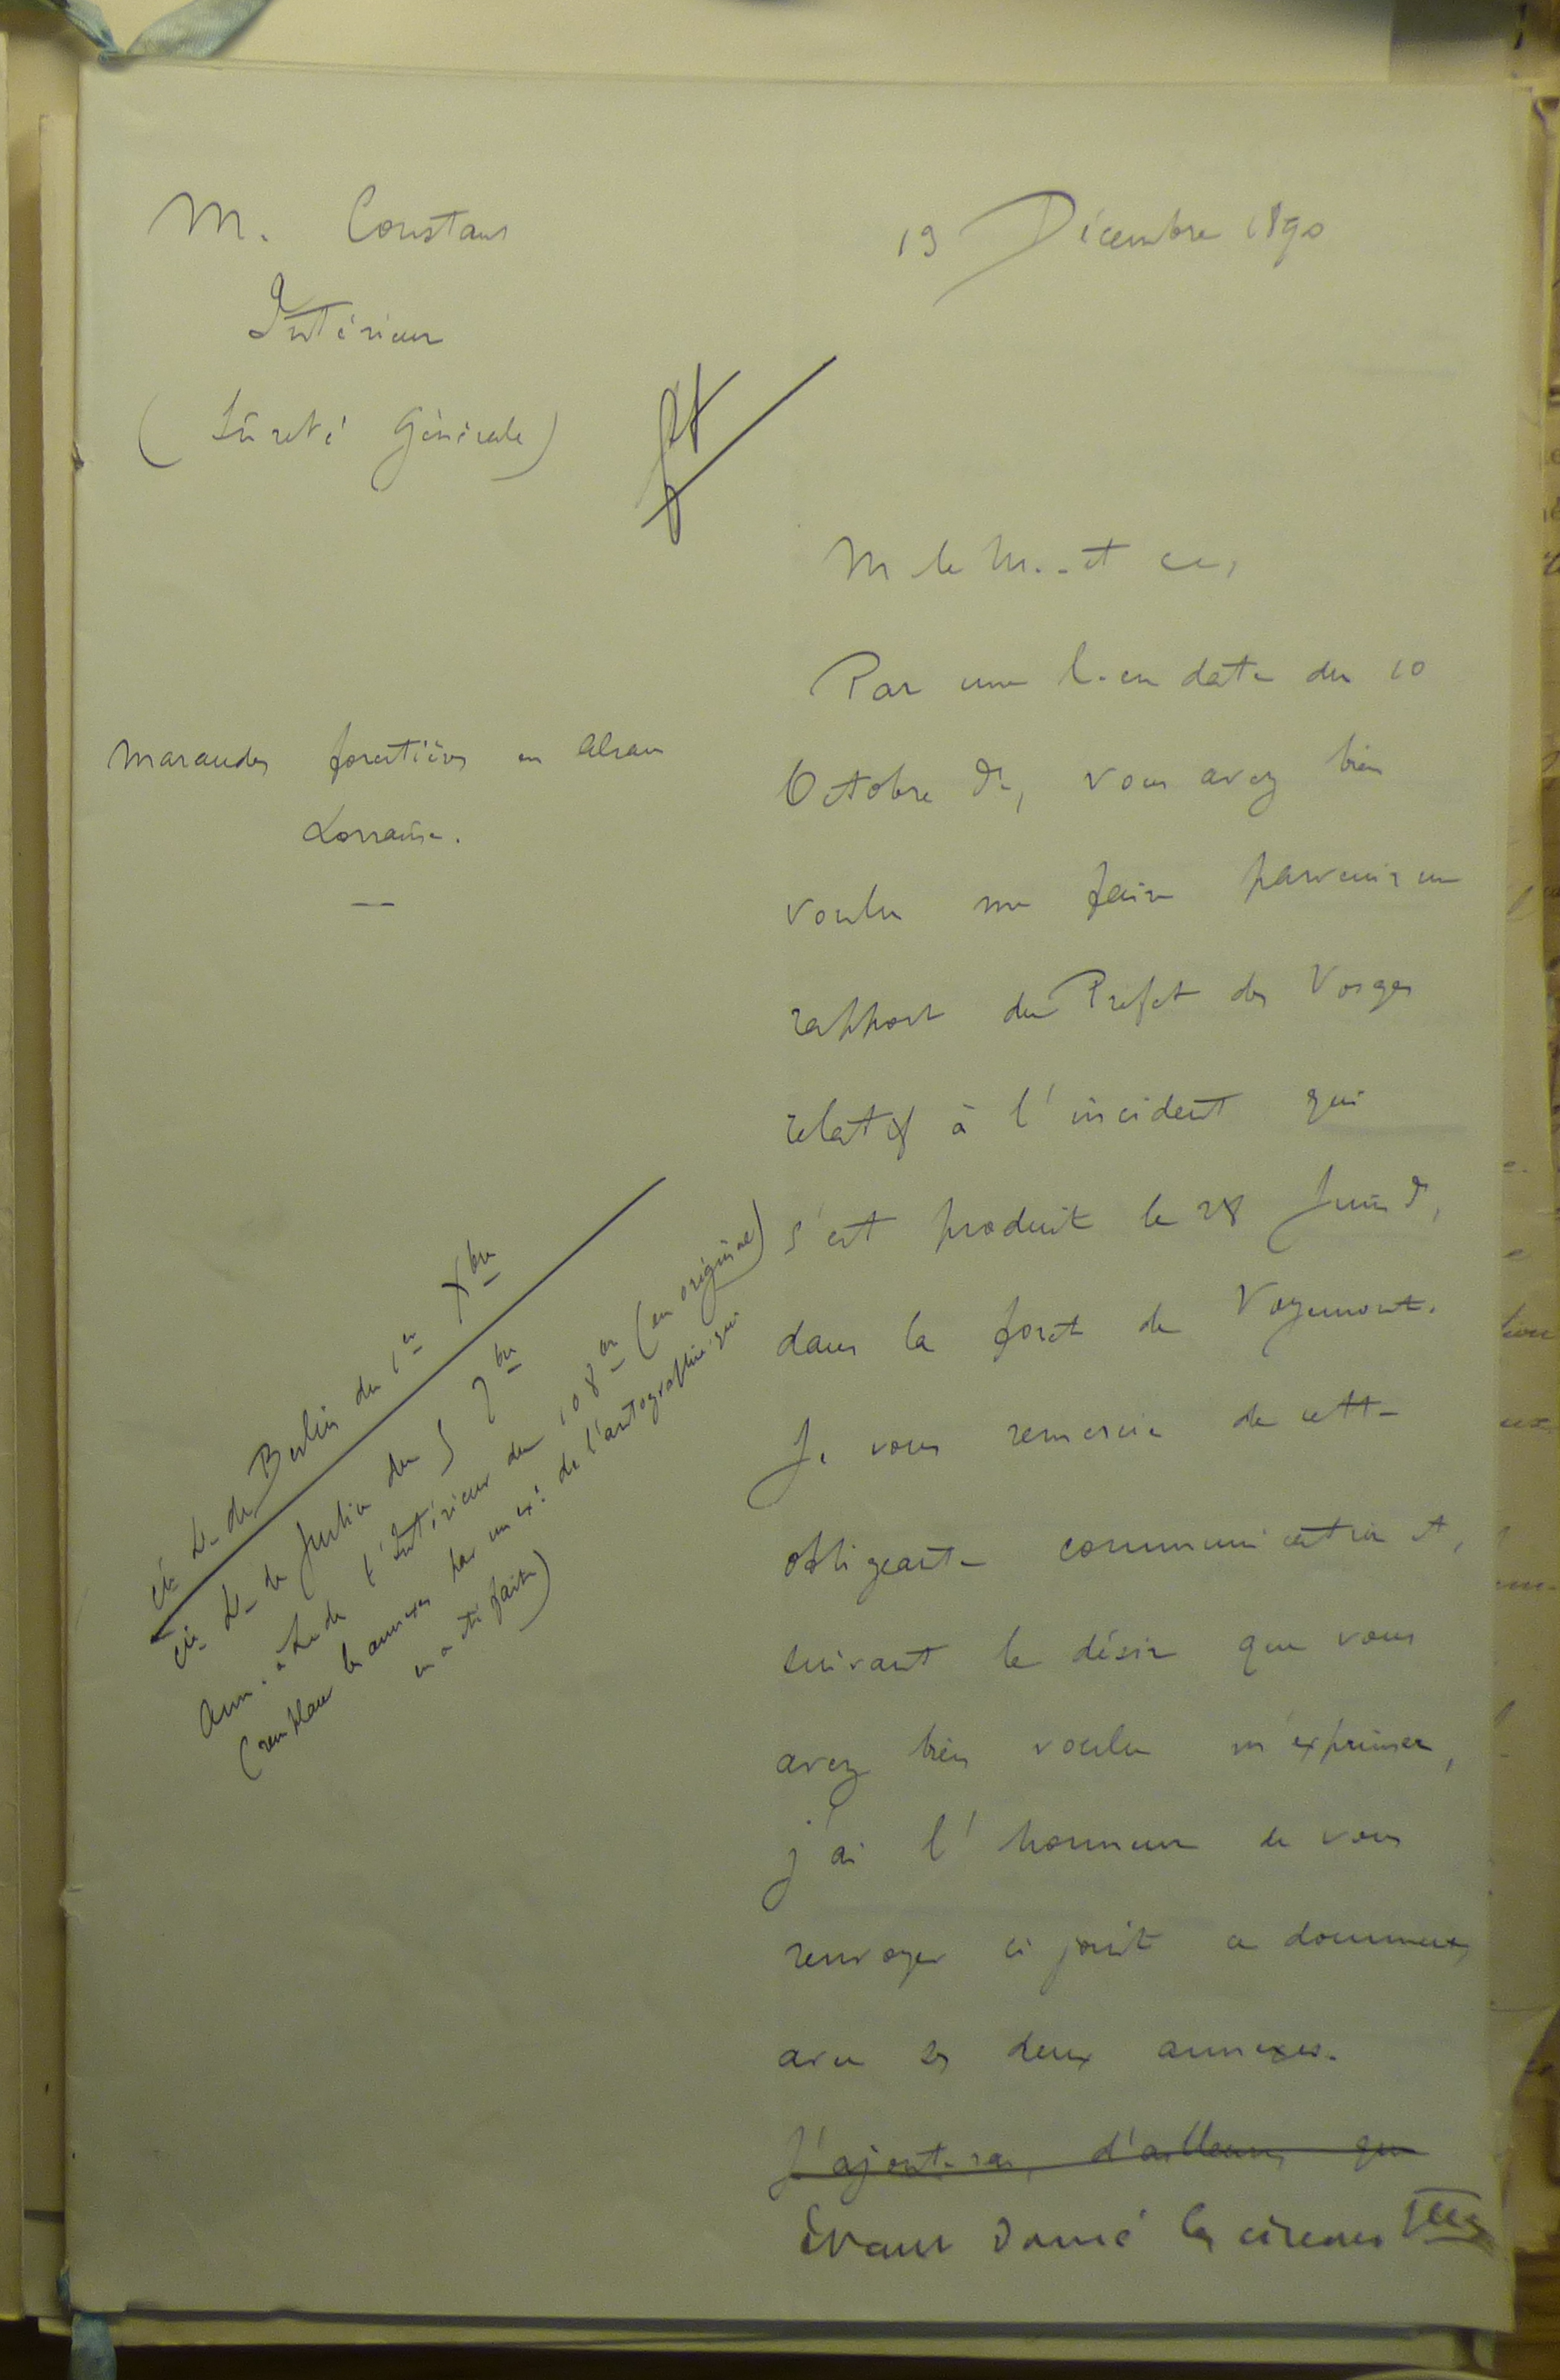 M. Constans
Intérieur
(Sûreté Générale)
19 Décembre 1890
M le M.. et c
Maraudes forestières en Alsace
Lorraine.
Par une l. en date du 10
Octobre dr, vous avez bien
voulu me faire parvenir un
rapport du Préfet des Vosges
relatif à l'incident qui
s'est produit le 28 Juin dr,
dans la foret de Voyemont.
Je vous remercie de cette
obligeante communication et,
suivant le désir que vous
avez bien voulu m'exprimer,
j'ai l'honneur de vous
renvoyer ci joint ce document,
avec ses deux annexes.
J'ajouterai, d'ailleurs, que
Etant donné les circonsces
de Berlin du 1er Xbre
de Justice du 5 7bre
Ann. à L. de l'Intérieur du 10 8bre (en original)
(remplacer les annexes par un exre de l'autographie qui
en a été faite)